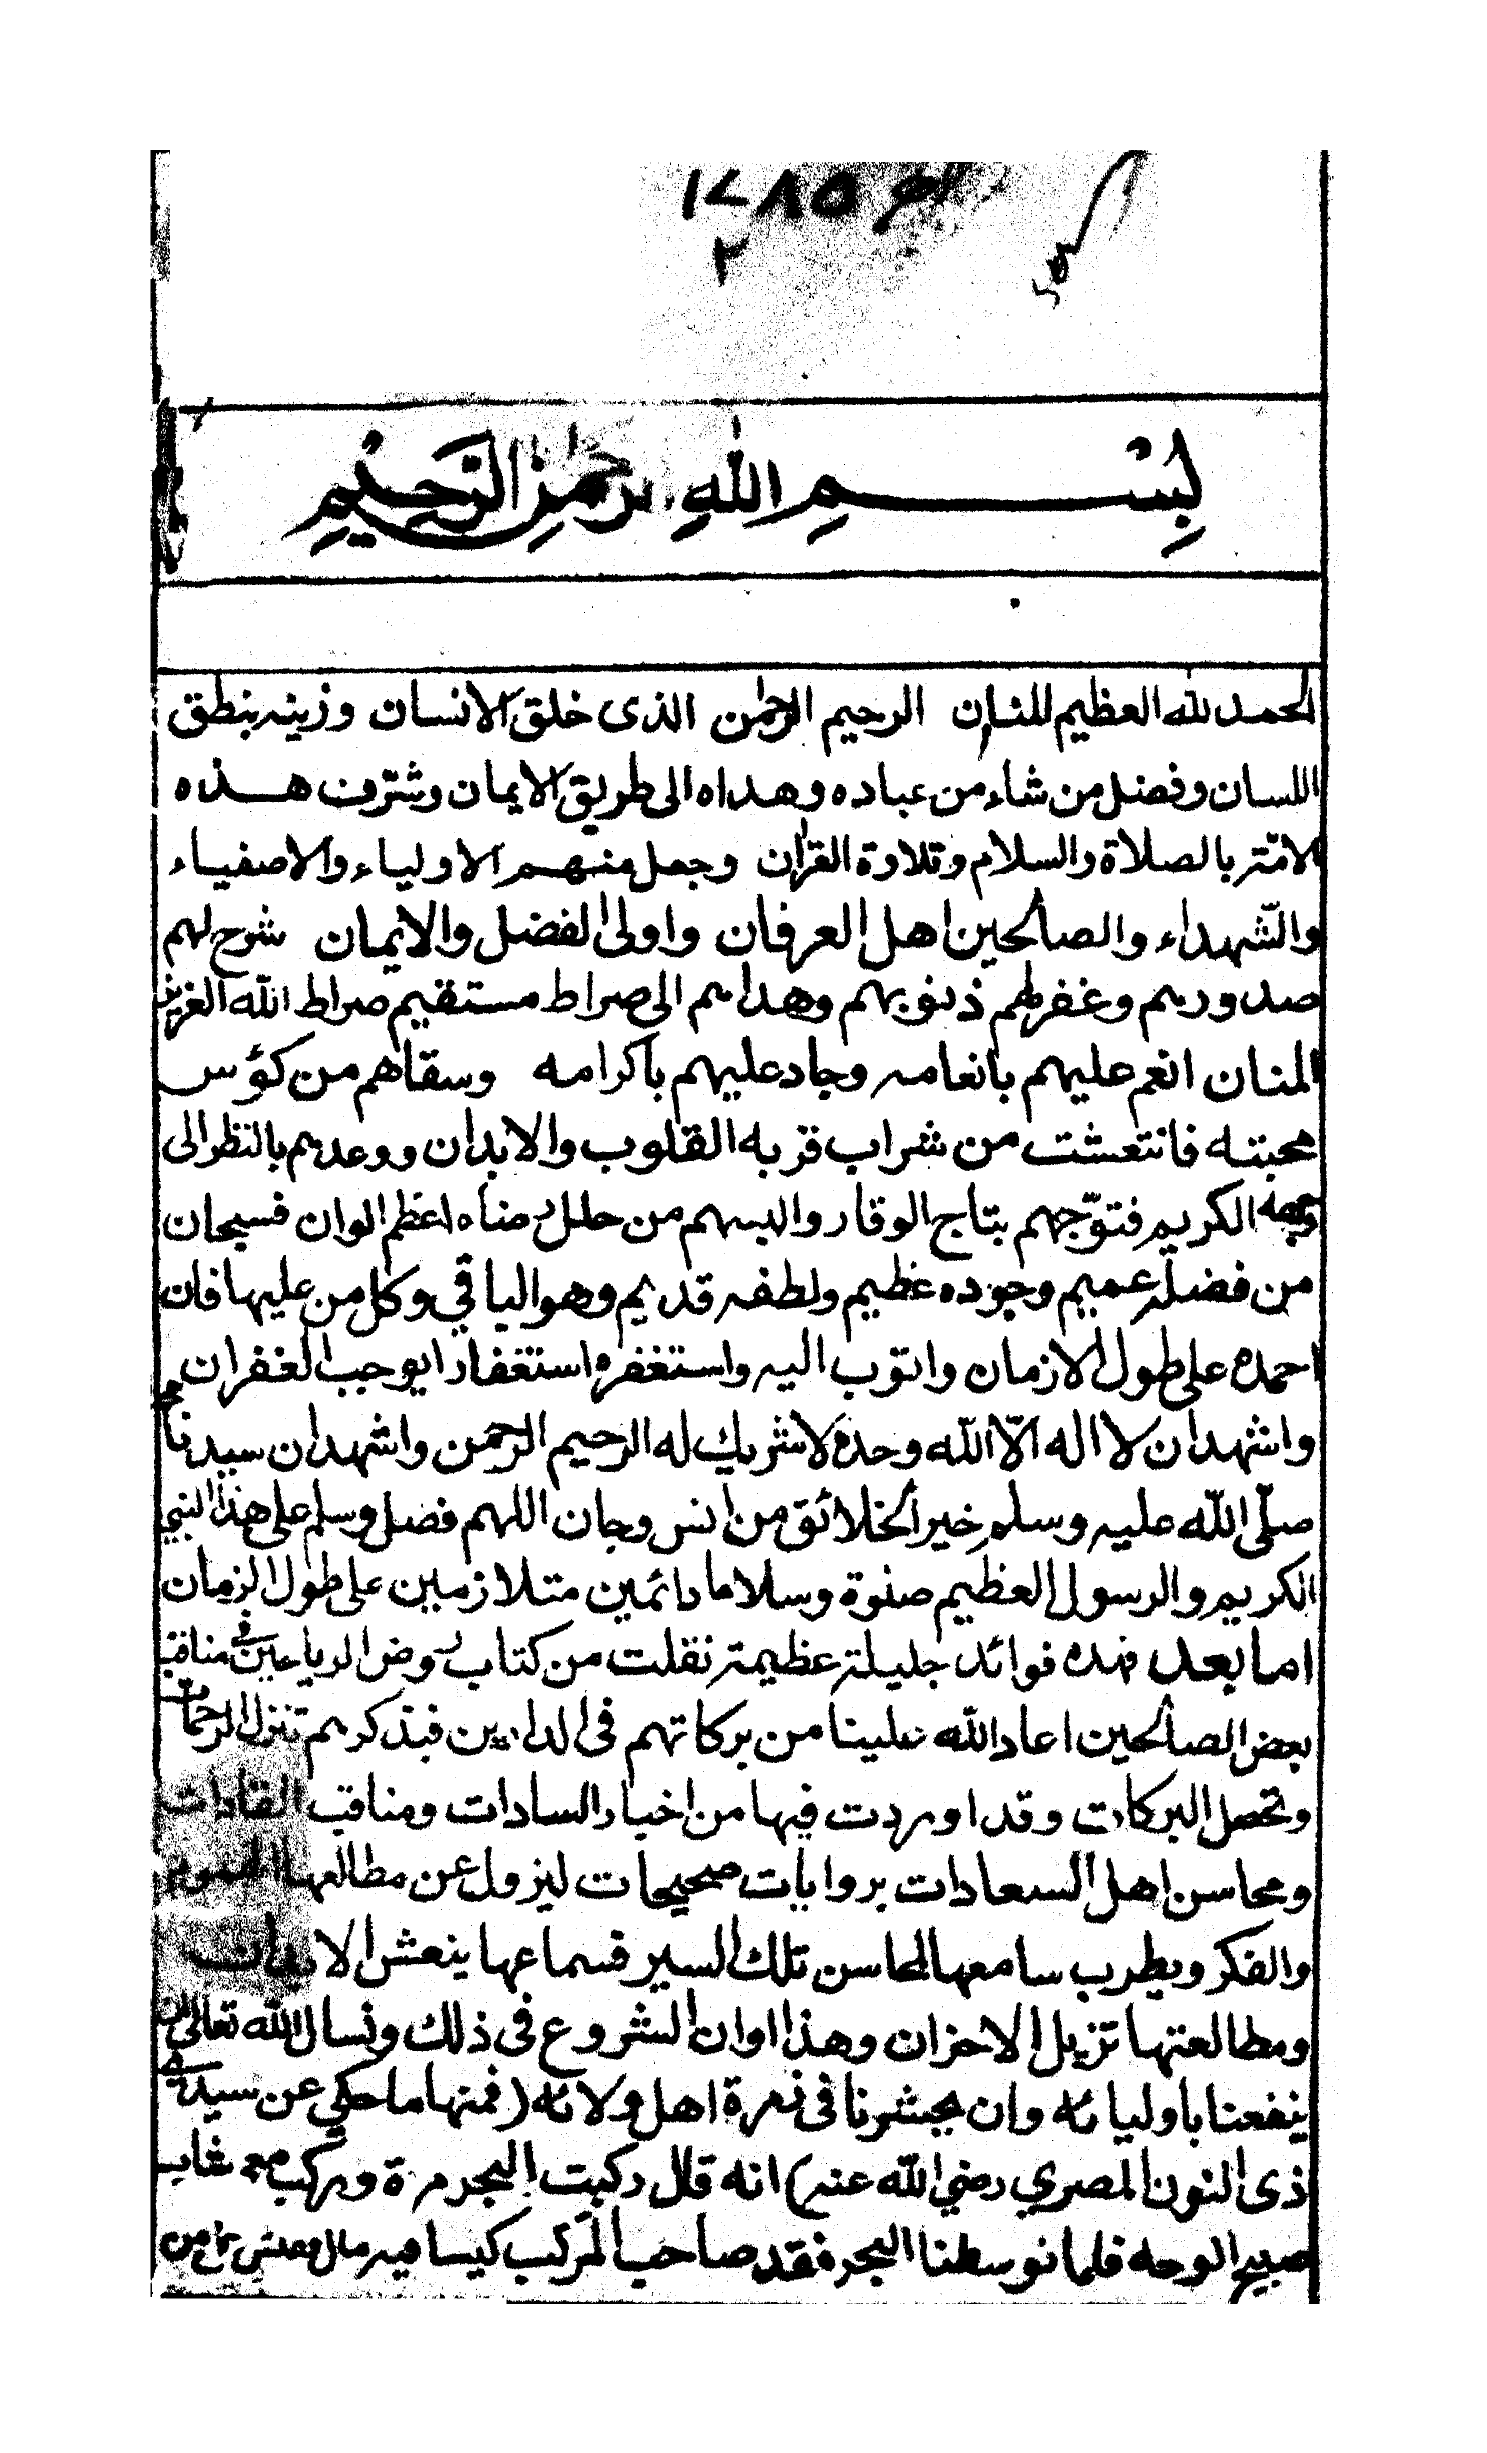 ١٢٨٥
٢
بِسْمِ اللهِ الرحمنِ الرَّحِيمِ
الحمد لله العظيم المنان الرحيم الرحمن الذى خلق الانسان وزينه بنطق
اللسان وفضل من شاء من عباده وهداه الى طريق الايمان وشرّف هذه
الامّة بالصلاة والسلام وتلاوة القران وجعل منهم الاولياء والاصفياء
والشّهداء والصالحين اهل العرفان واولى الفضل والايمان شرح لهم
صدورهم وغفر لهم ذنوبهم وهداهم الى صراط مستقيم صراط الله العزيز
المنان انعم عليهم بانعامه وجاد عليهم باكرامه وسقاهم من كؤس
محبته فانتعشت من شراب قربه القلوب والابدان ووعدهم بالنظر الى
وجهه الكريم فتوّجهم بتاج الوقار والبسهم من حلل رضاه اعظم الوان فسبحان
من فضله عميم وجوده عظيم ولطفه قديم وهو الباقي وكل من عليها فان
احمده على طول الازمان واتوب اليه واستغفره استغفارا يوجب الغفران
واشهد ان لا اله الّا الله وحده لا شريك له الرحيم الرحمن واشهد ان سيدنا محمد
صلّى الله عليه وسلم خير الخلائق من انس وجان اللهم فصل وسلم على هذا النبي
الكريم والرسول العظيم صلوة وسلاما دائمين متلازمين على طول الزمان
اما بعد فهذه فوائد جليلة عظيمة نقلت من كتاب روض الرياحين في مناقب
بعض الصالحين اعاد الله علينا من بركاتهم فى الدارين فبذكرهم تنزل الرحمات
وتحصل البركات وقد اوردت فيها من اخبار السادات ومناقب القادات
ومحاسن اهل السعادات بروايات صحيحات ليزول عن مطالعها الهموم
والفكر ويطرب سامعها لمحاسن تلك السير فسماعها ينعش الابدان
ومطالعتها تزيل الاحزان وهذا اوان الشروع فى ذلك ونسال الله تعالى ان
ينفعنا باوليائه وان يحشرنا فى زمرة اهل ولائه (فمنها ما حكي عن سيدى
ذى النون المصري رضي الله عنه) انه قال ركبت البحر مرة وركب معى شاب
صبيح الوجه فلما توسطنا البحر فقد صاحب المركب كيسا فيه مال